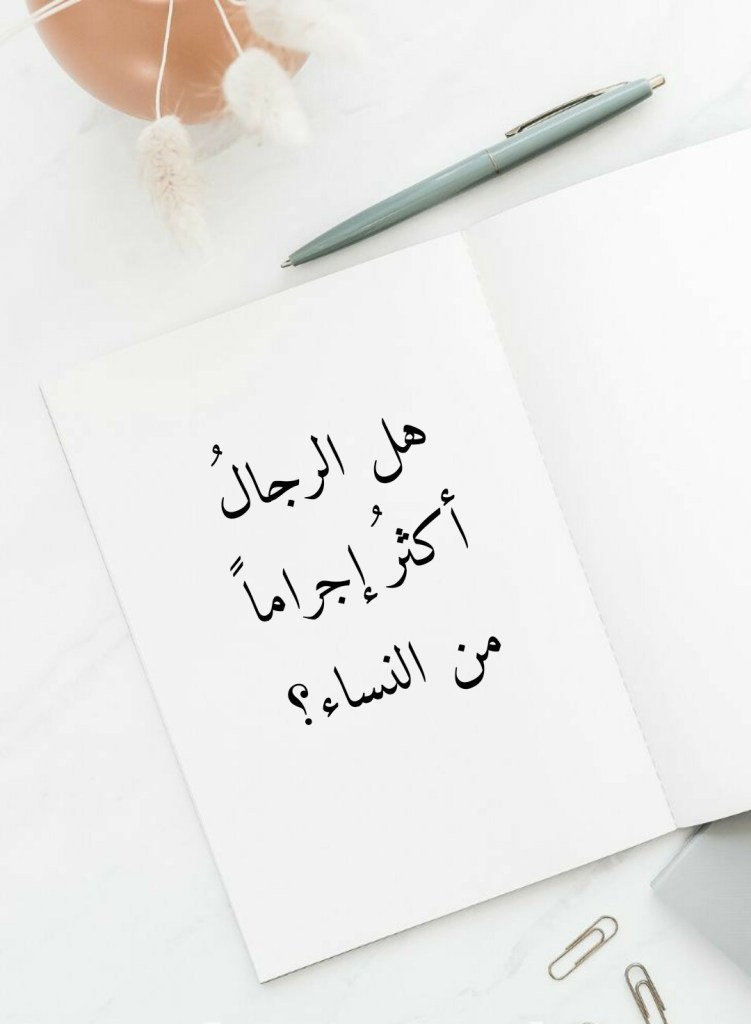 هل الرجالُ
أكثرُ إجراماً
من النساء؟